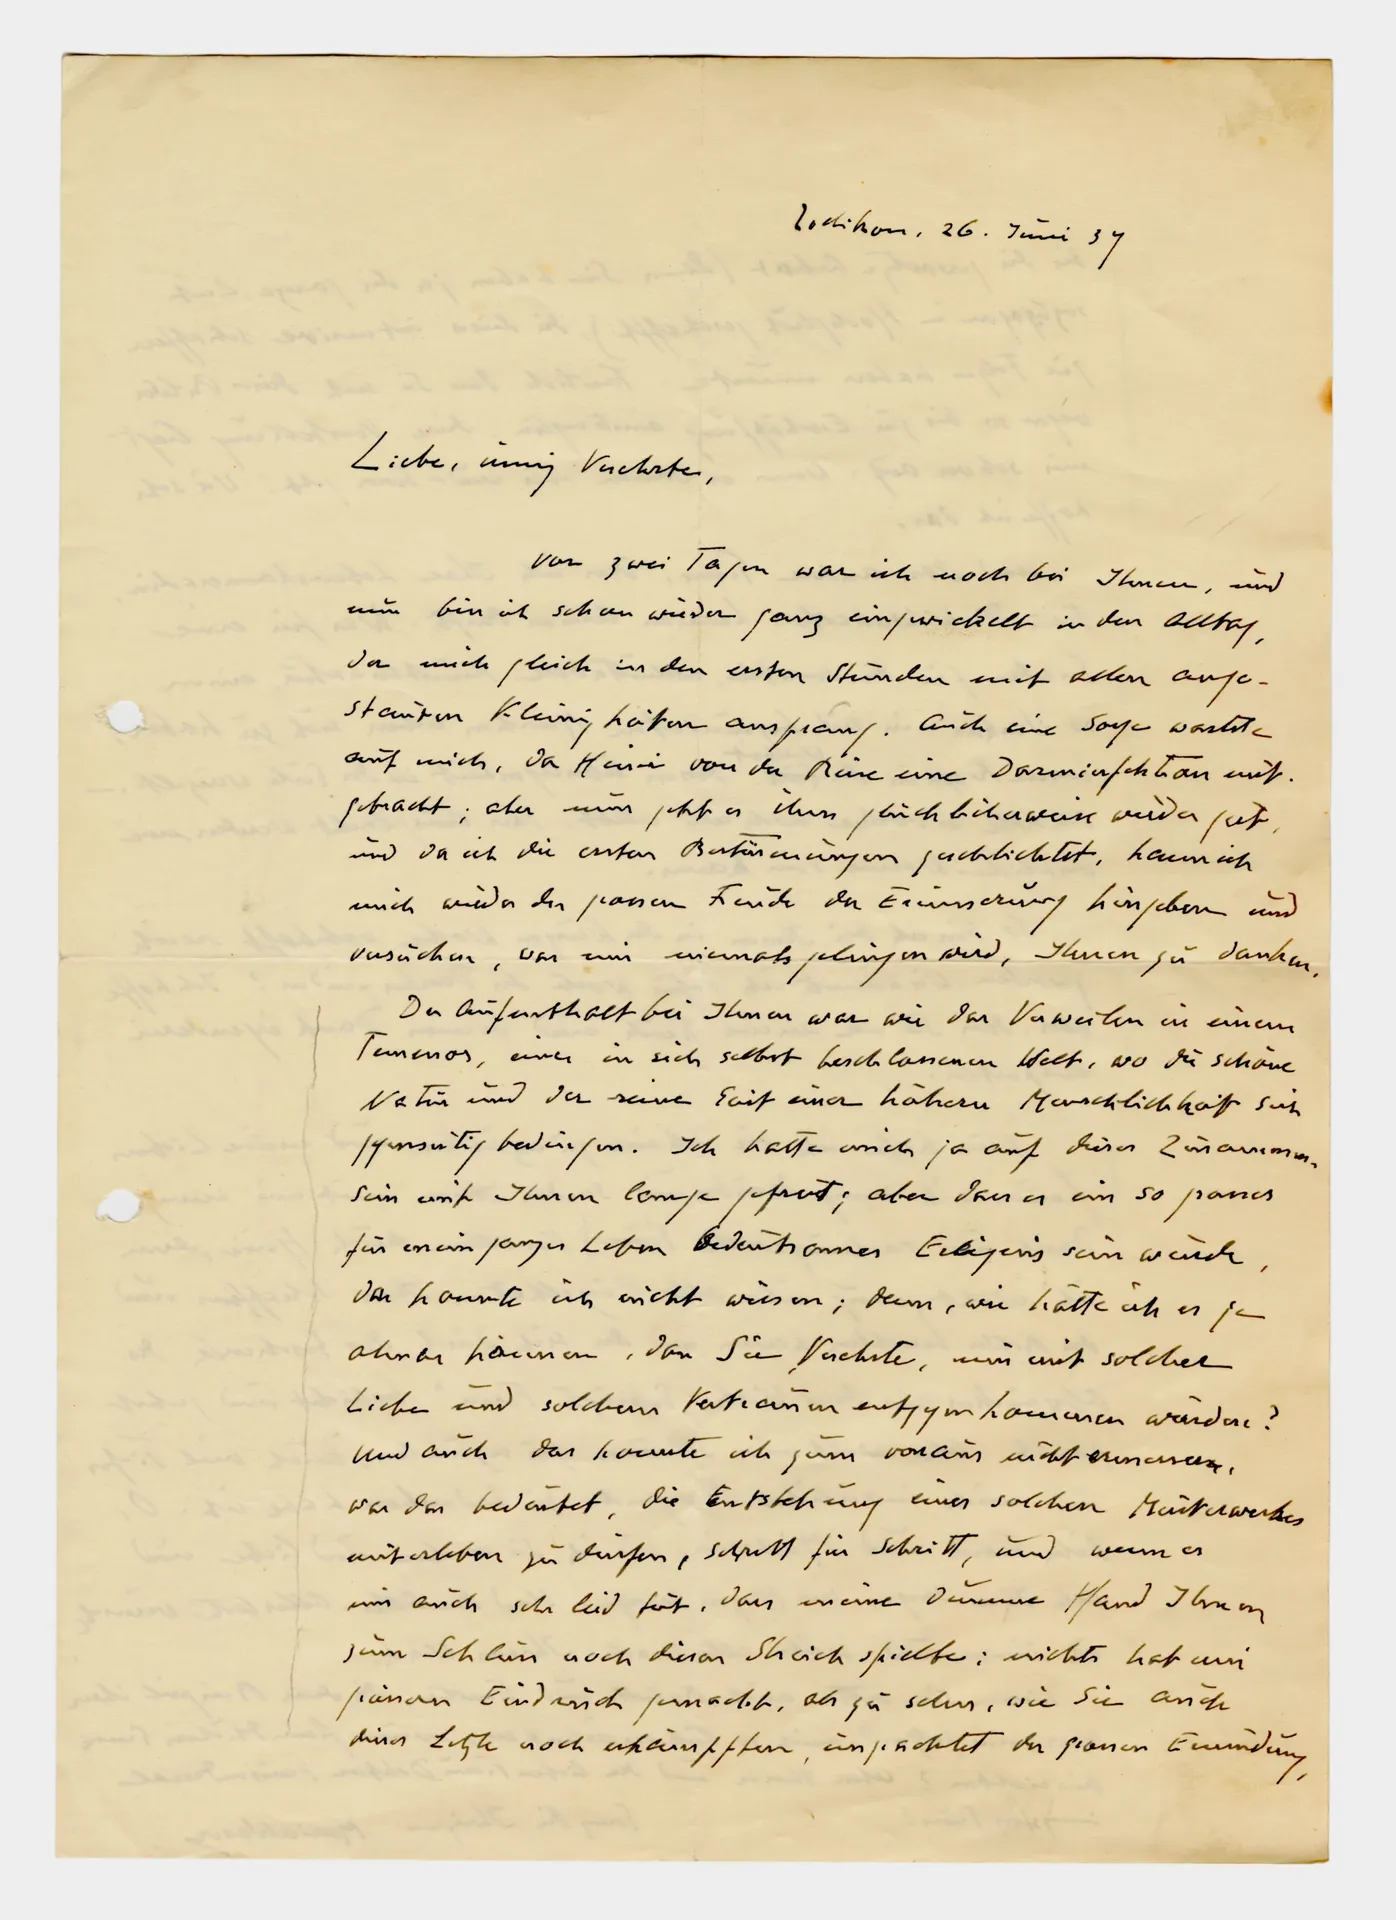 Zollikon, 26. Juni 37
Liebe, innig Verehrte,
vor zwei Tagen war ich noch bei Ihnen, und
nun bin ich schon wieder ganz eingewickelt in den Alltag,
der mich gleich in den ersten Stunden mit allen ange-
stauten Kleinigkeiten ansprang. Auch eine Sorge wartete
auf mich, da Heini von der Reise eine Darminfektion mit-
gebracht; aber nun geht es ihm glücklicherweise wieder gut,
und da ich die ersten Bestürmungen geschlichtet, kann ich
mich wieder der grossen Freude der Erinnerung hingeben und
versuchen, was mir niemals gelingen wird, Ihnen zu danken.
Der Aufenthalt bei Ihnen war wie das Verweilen in einem
Temenos, einer in sich selbst beschlossenen Welt, wo die schöne
Natur und der reine Geist einer höhern Menschlichkeit sich
gegenseitig bedingen. Ich hatte mich ja auf dieses Zusammen-
sein mit Ihnen lange gefreut; aber dass es ein so grosses
für mein ganzes Leben bedeutsames Ereignis sein würde,
das konnte ich nicht wissen; denn, wie hätte ich es je
ahnen können, dass Sie, Verehrte, mir mit solcher
Liebe und solchem Vertrauen entgegenkommen würden?
Und auch das konnte ich zum voraus nicht ermessen,
was das bedeutet, die Entstehung eines solchen Meisterwerkes
miterleben zu dürfen, Schritt für Schritt, und wenn es
mir auch sehr leid tut, dass meine dumme Hand Ihnen
zum Schluss noch diesen Streich spielte; nichts hat mir
grössern Eindruck gemacht, als zu sehen, wie Sie auch
dieses Letzte noch erkämpften, ungeachtet der grossen Ermüdung,